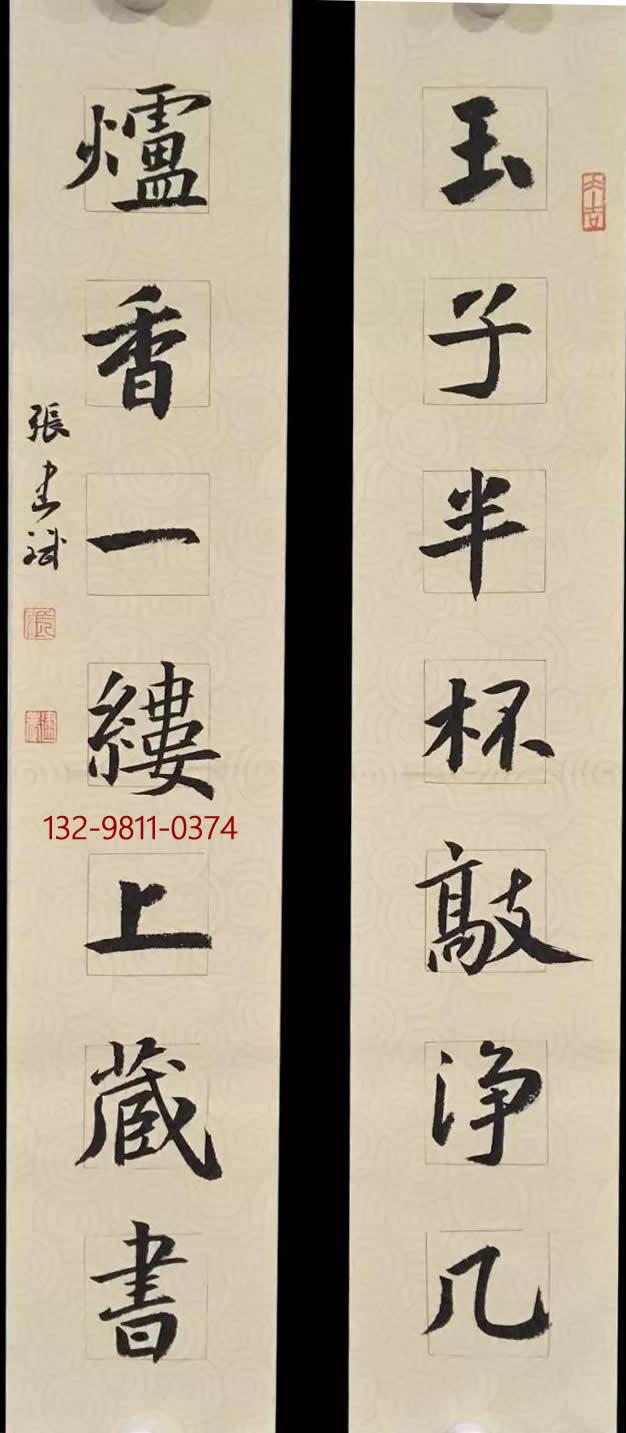 玉子半杯敲浄几
爐香一縷上蔵書
張書斌
132-9811-0374